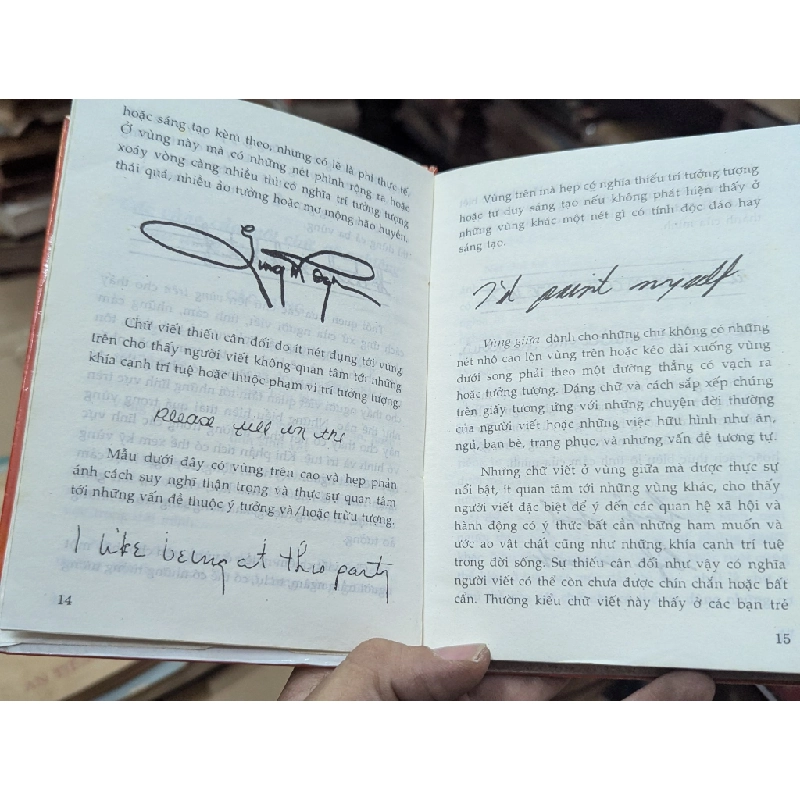 hoặc sáng tạo kèm theo, nhưng có lẽ là phi thực tế.
Ở vùng này mà có những nét phình rộng ra hoặc
xoáy vòng càng nhiều thì có nghĩa trí tưởng tượng
thái quá, nhiều ảo tưởng hoặc mơ mộng hão huyền.
Chữ viết thiếu cân đối do ít nét đụng tới vùng
trên cho thấy người viết không quan tâm tới những
khía cạnh trí tuệ hoặc thuộc phạm vi trí tưởng tượng.
please fill in the
Mẫu dưới đây có vùng trên cao và hẹp phản
ánh cách suy nghĩ thận trọng và thực sự quan tâm
tới những vấn đề thuộc ý tưởng và/hoặc trừu tượng.
I like being at this party
14
Vùng trên mà hẹp có nghĩa thiếu trí tưởng tượng
hoặc tư duy sáng tạo nếu không phát hiện thấy ở
những vùng khác một nét gì có tính độc đáo hay
sáng lạc.
I'd paint myself
Vùng giữa dành cho những chữ không có những
nét nhô cao lên vùng trên hoặc kéo dài xuống vùng
dưới song phải theo một đường thẳng có vạch ra
hoặc tưởng tượng. Dáng chữ và cách sắp xếp chúng
trên giấy tương ứng với những chuyện đời thường
của người viết hoặc những việc hữu hình như ăn,
ngủ, bạn bè, trang phục, và những vấn đề tương tự.
Nhưng chữ viết ở vùng giữa mà được thực sự
nổi bật, ít quan tâm tới những vùng khác, cho thấy
người viết đặc biệt để ý đến các quan hệ xã hội và
hành động có ý thức bất cần những ham muốn và
ước ao vật chất cũng như những khía cạnh trí tuệ
trong đời sống. Sự thiếu cân đối như vậy có nghĩa
người viết có thể còn chưa được chín chắn hoặc bất
cần. Thường kiểu chữ viết này thấy ở các bạn trẻ
15